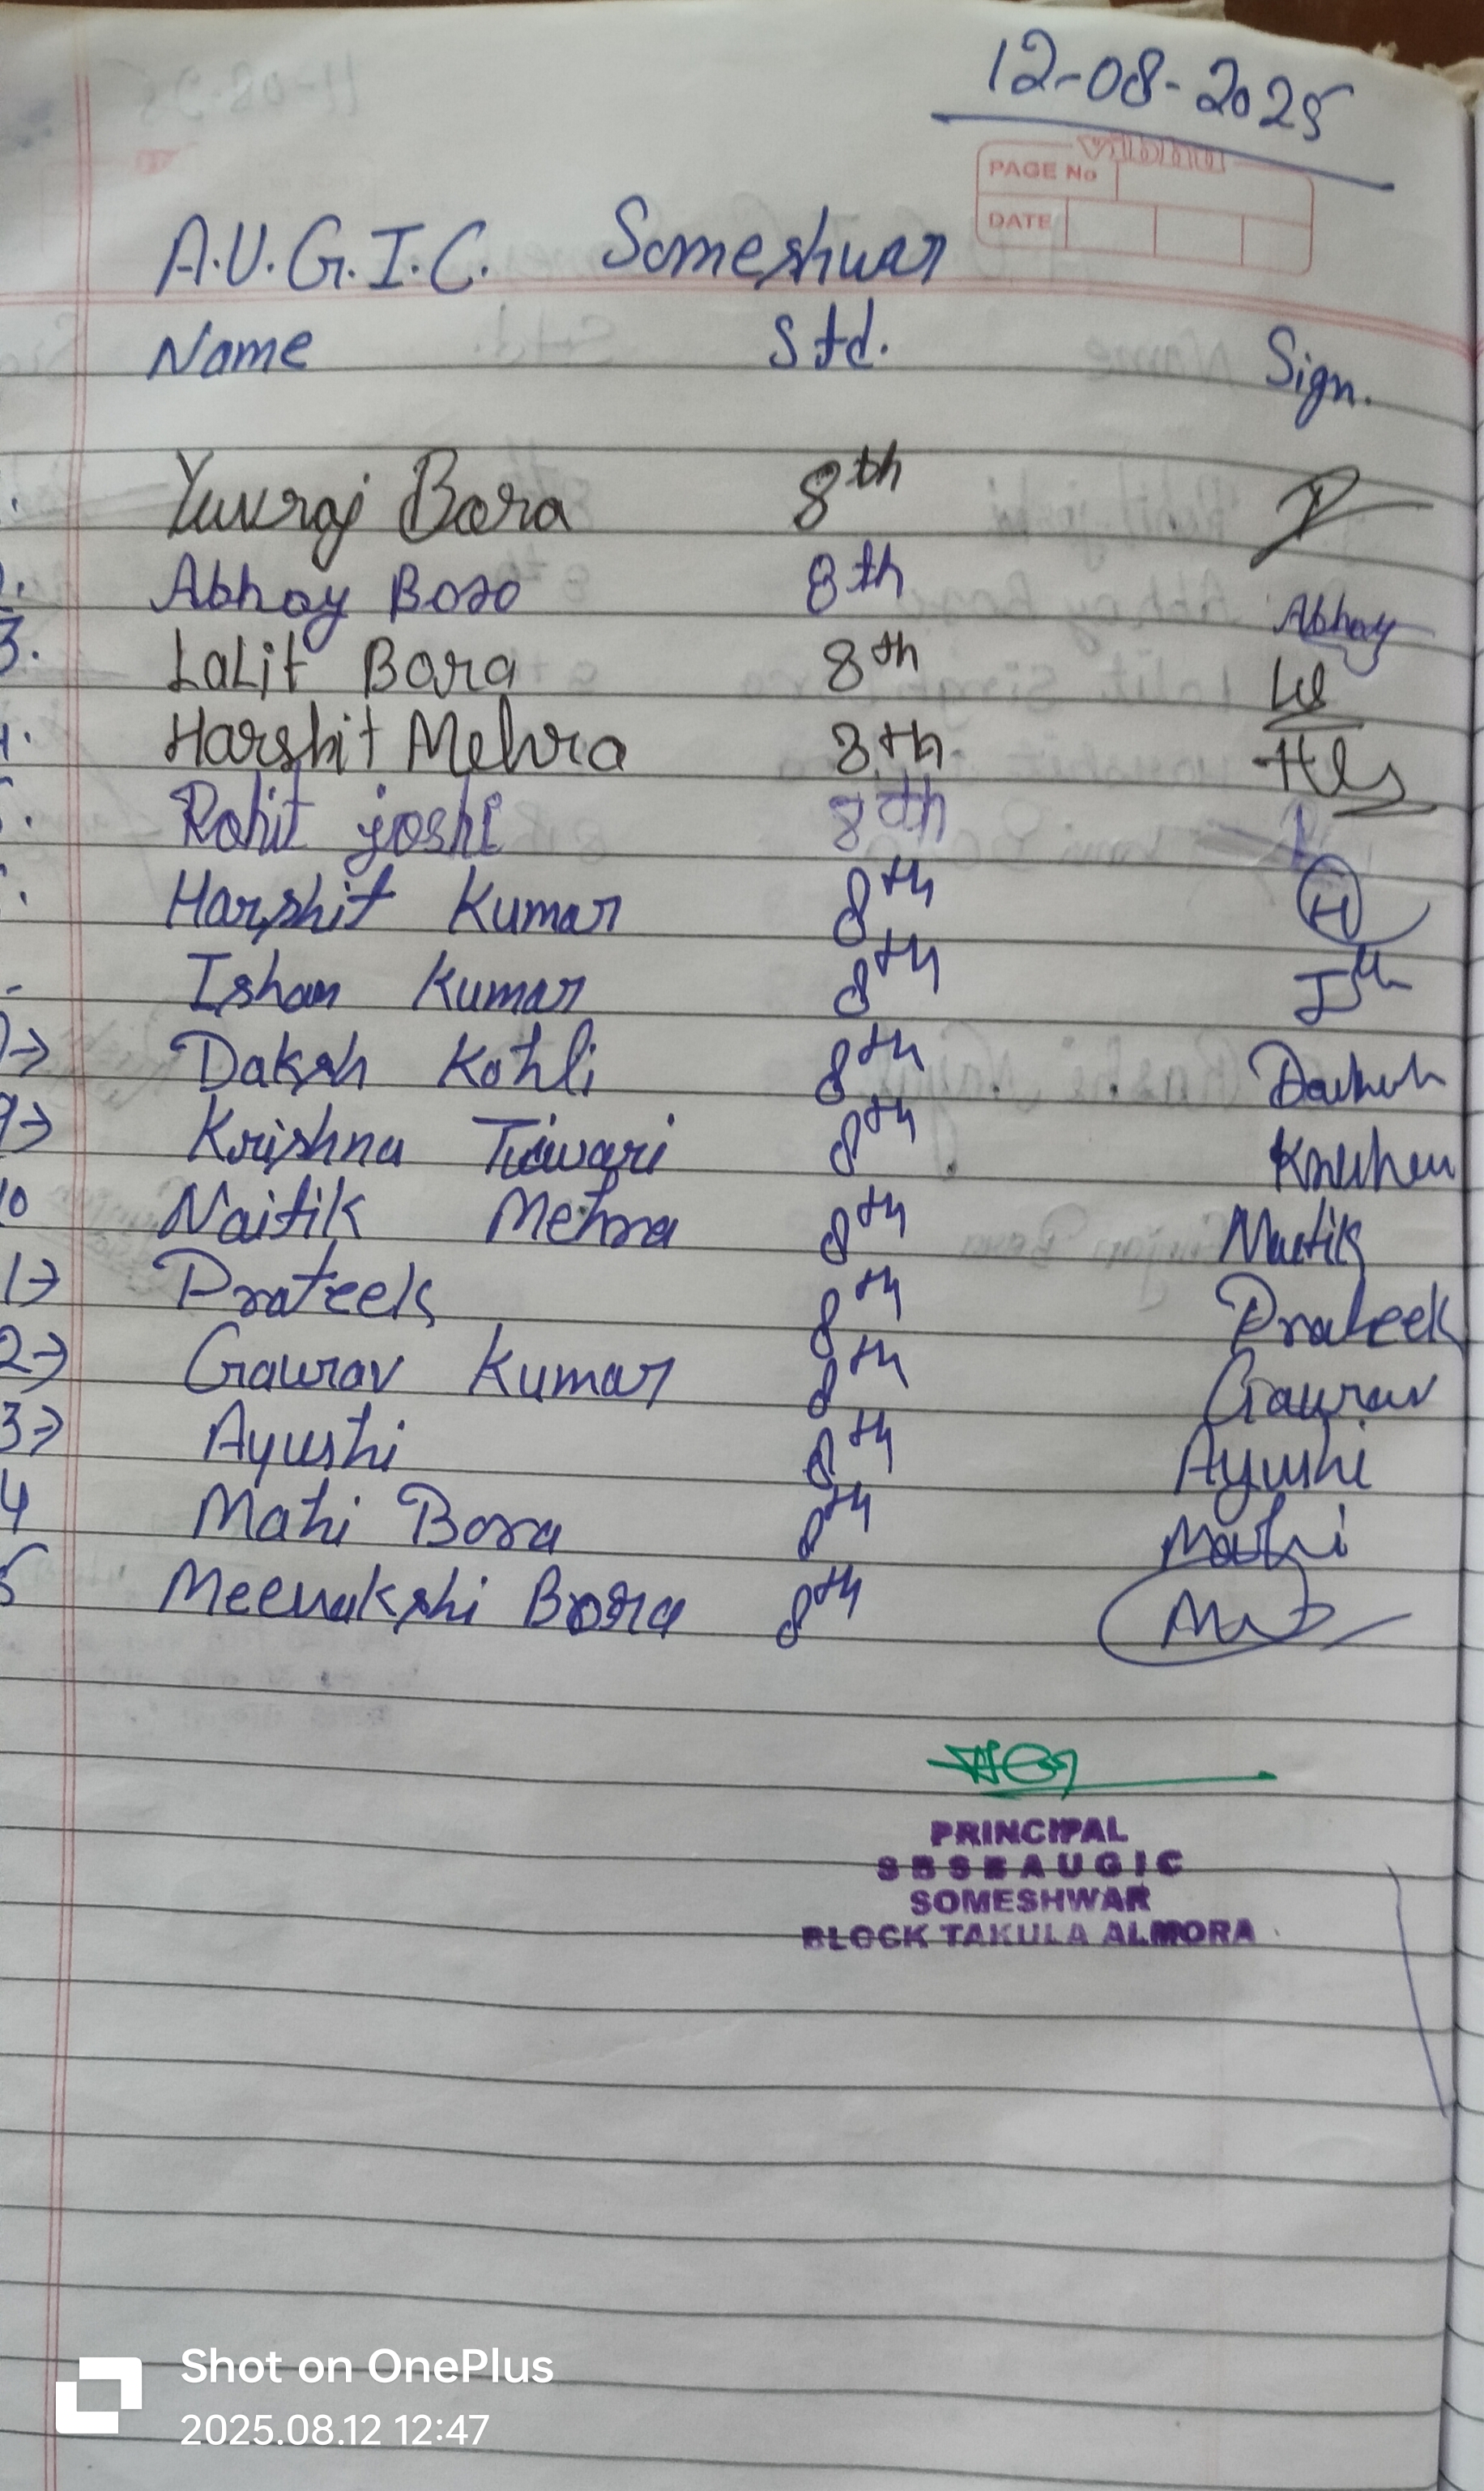 12-08-2025
vibhu
PAGE No
DATE
A.U.G.I.C. Someshwar
Name Std. Sign.
Yuvraj Bora 8th
2. Abhay Boro 8th Abhay
3. Lalit Bora 8th
4. Harshit Mehra 8th
5. Rohit joshi 8th
Harshit Kumar 8th H
Ishan Kumar 8th
Daksh Kohli 8th Daksh
9→ Krishna Tiwari 8th
10 Naitik Mehra 8th Naitik
1→ Prateek 8th Prateek
2→ Gaurav Kumar 8th Gaurav
3→ Ayushi 8th Ayushi
4 Mahi Bora 8th Mahi
5 Meenakshi Bora 8th
PRINCIPAL
S B S B A U G I C
SOMESHWAR
BLOCK TAKULA ALMORA
Shot on OnePlus
2025.08.12 12:47